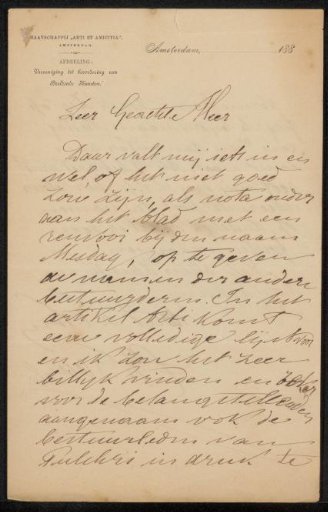 MAATSCHAPPIJ "ARTI ET AMICITIAE".
AMSTERDAM.
AFDEELING:
Vereeniging tot bevordering van
Beeldende Kunsten.
Amsterdam, 188
Zeer Geachte Heer
Daar valt mij iets in en
wel, of het niet goed
zou zijn, als nota onder
aan het blad met een
renvooi bij den naam
Mesdag, op te geven
de namen der andere
bestuurderen. In het
artikel Arti komt
eene volledige lijst voor
en ik zou het zeer
billijk vinden en
voor de belangstellenden
aangenaam ook de
bestuurleden van
Pulchri in druk te